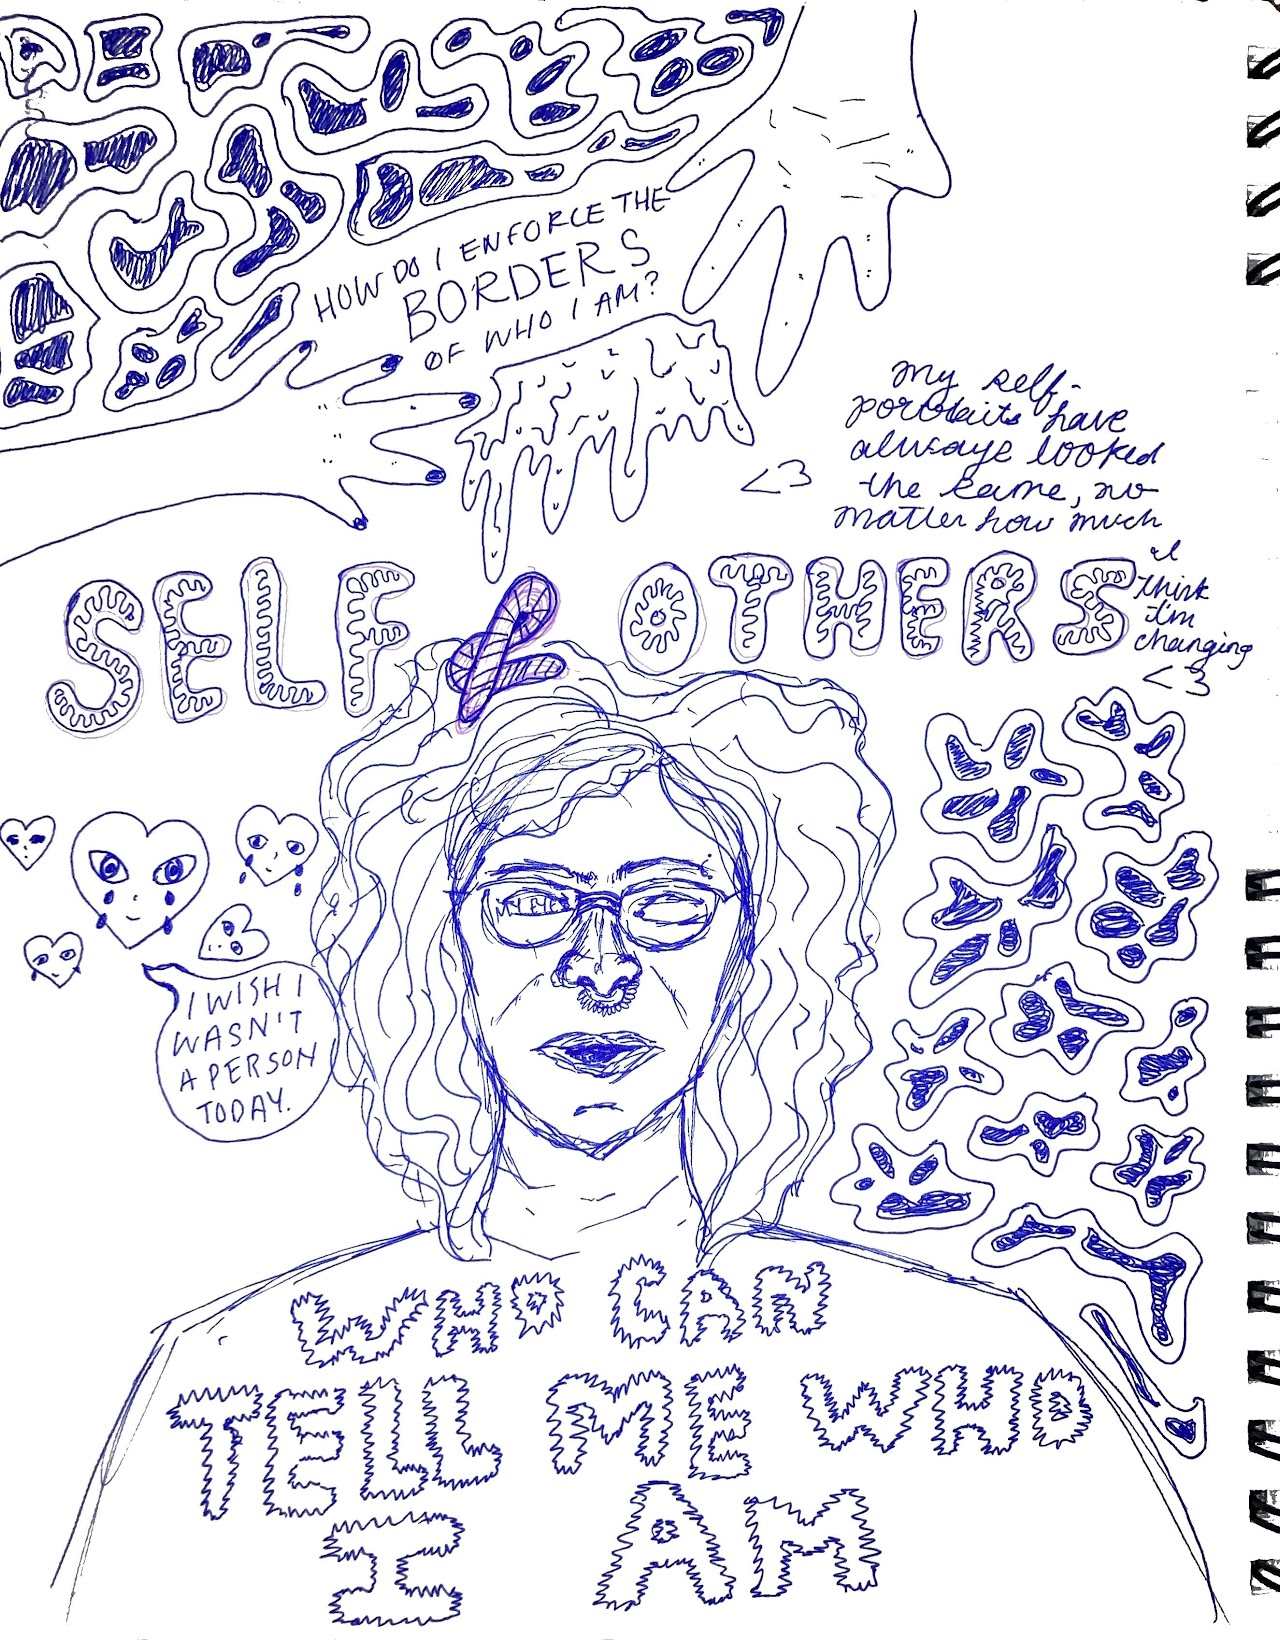 HOW DO I ENFORCE THE
BORDERS
OF WHO I AM?
my self-
portraits have
always looked
the same, no
matter how much
I
think
I'm
changing
<3
<3
SELF & OTHERS
MY EYES
I WISH I
WASN'T
A PERSON
TODAY.
WHO CAN
TELL ME WHO
I AM